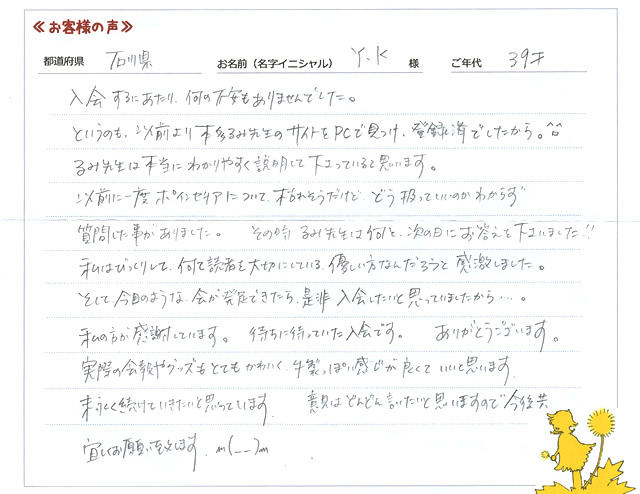 ≪お客様の声≫
都道府県 石川県 お名前（名字イニシャル） Y.K 様 ご年代 39才
入会するにあたり、何の不安もありませんでした。
というのも、以前より本多るみ先生のサイトをPCで見つけ、登録済でしたから。^^
るみ先生は本当にわかりやすく説明して下さっていると思います。
以前に一度ポインセチアについて、枯れそうだけど、どう扱っていいのかわからず
質問した事がありました。 その時るみ先生は何と、次の日にお答えを下さいました!!
私はびっくりして、何て読者を大切にしている、優しい方なんだろうと感激しました。
そして今日のような会が発足できたら、是非入会したいと思っていましたから…。
私の方が感謝しています。 待ちに待っていた入会です。 ありがとうございます。
実際の会報やグッズもとてもかわいく、手製っぽい感じが良くていいと思います。
末永く続けていきたいと思ってます。 意見はどんどん言いたいと思いますので今後共
宜しくお願い致します。m(__)m